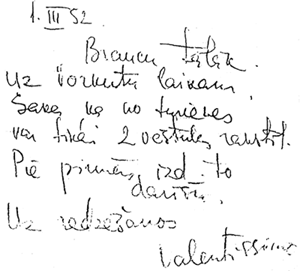 1. III 52.
Braucu tālāk.
Uz Vorkutu laikam.
Saka, ka no turienes
var tikai 2 vēstules rakstīt.
Pie pirmās izd. to
darīšu.
Uz redzēšanos